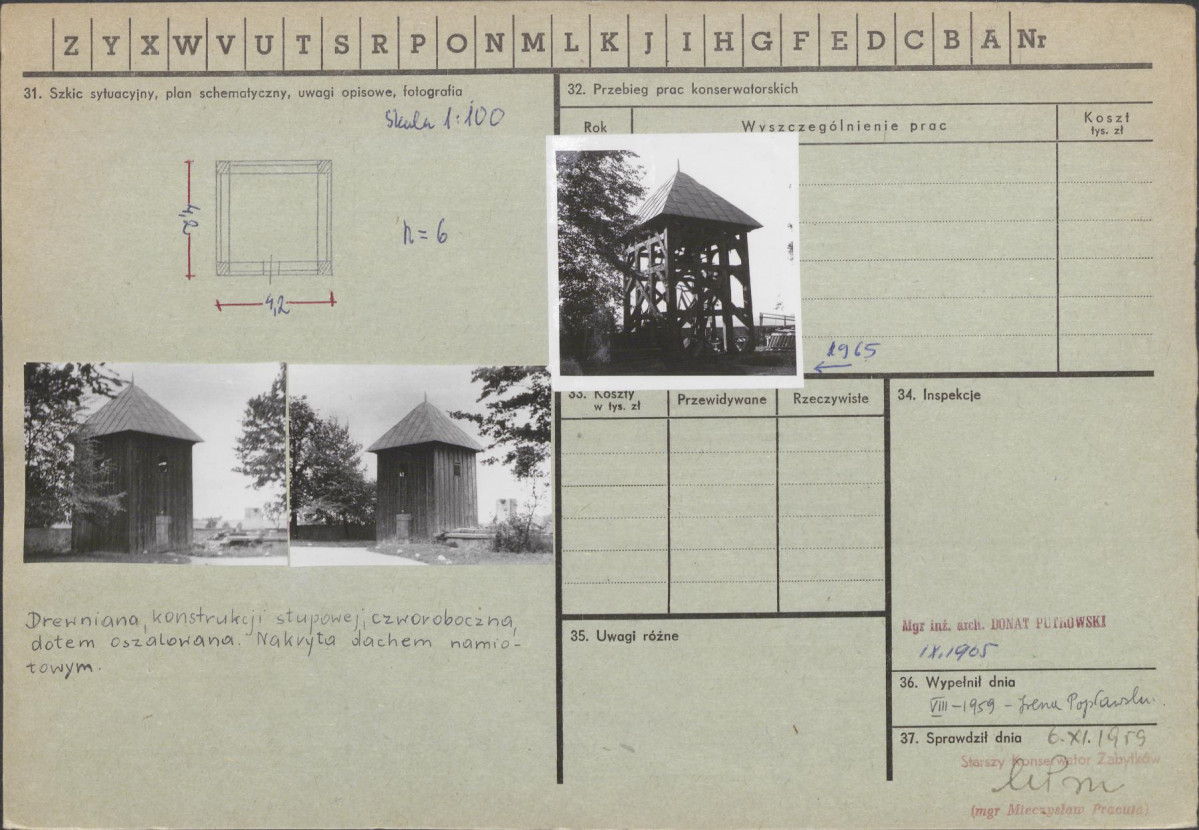 Z Y X W V U T S R P O N M L K J I H G F E D C B A Nr
31. Szkic sytuacyjny, plan schematyczny, uwagi opisowe, fotografia
Skala 1:100
4,2
h = 6
4,2
Drewniana, konstrukcji słupowej, czworoboczna,
dołem oszalowana. Nakryta dachem namio-
towym.
32. Przebieg prac konserwatorskich
Rok
Wyszczególnienie prac
Koszt
tys. zł
1965
33. Koszty
w tys. zł
Przewidywane
Rzeczywiste
34. Inspekcje
Mgr inż. arch. DONAT PUTKOWSKI
IX.1965
35. Uwagi różne
36. Wypełnił dnia
VIII-1959 - Irena Popławska
37. Sprawdził dnia 6.XI.1959
Starszy Konserwator Zabytków
(mgr Mieczysław